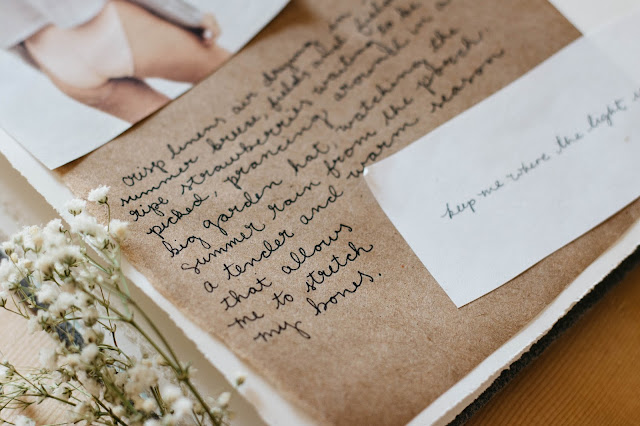 crisp linens air drying in
summer breeze, fields and fields
ripe strawberries waiting to be
picked, prancing around in a
big garden hat, watching the
summer rain from the porch.
a tender and warm season
that allows
me to stretch
my bones.
keep me where the light